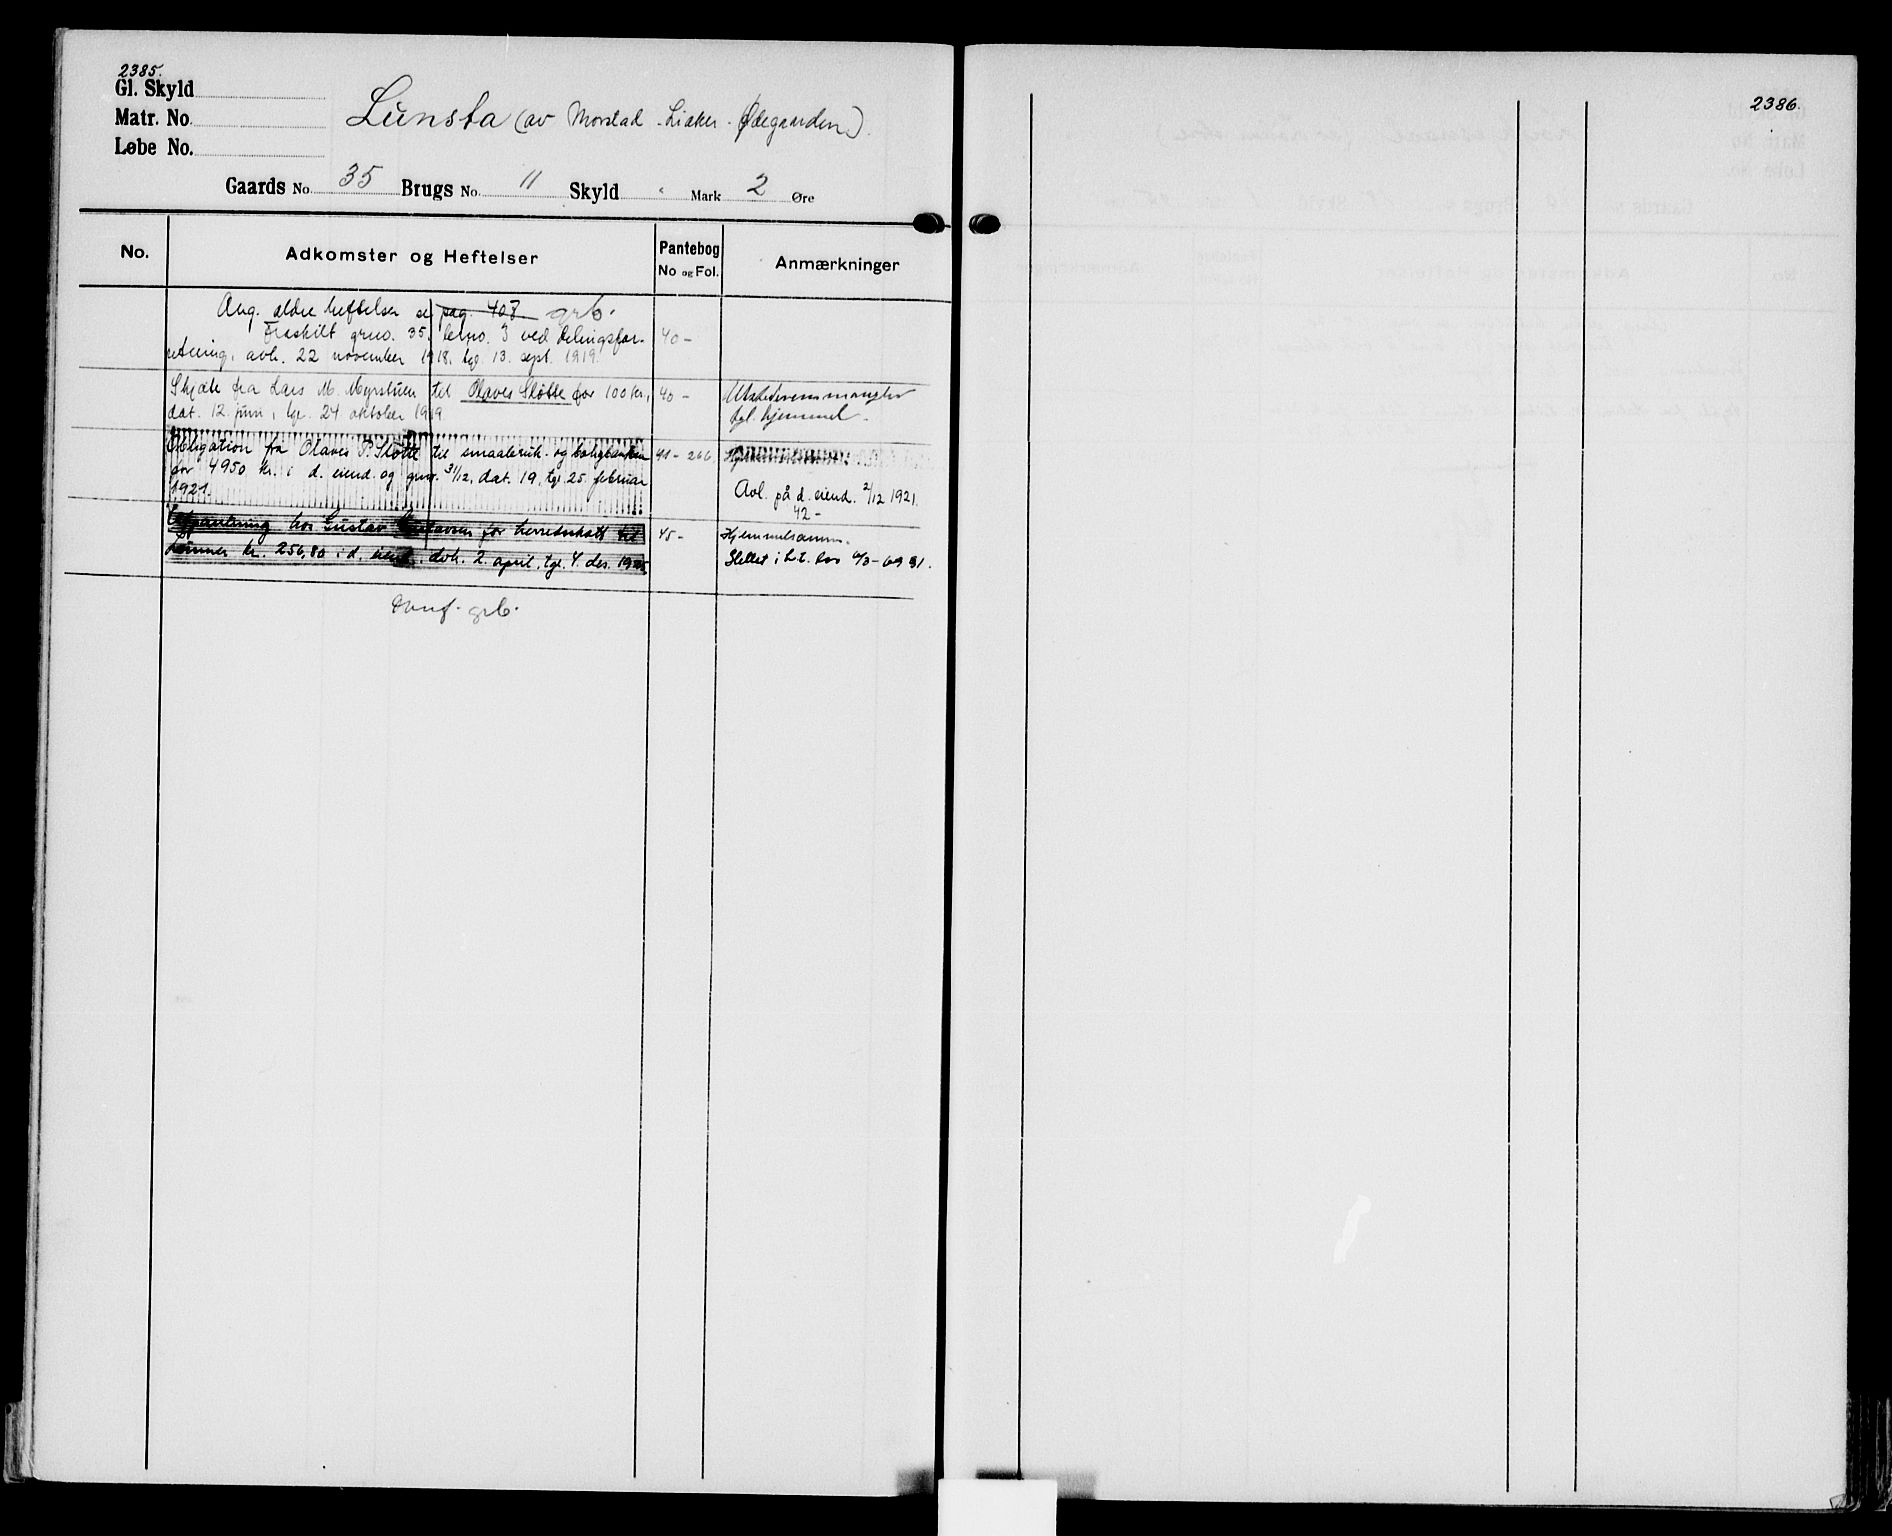 2385.
Gl. Skyld
Matr. No.
Løbe No.
Lunsta (av Morstad - Liaker - Ødegaarden).
Gaards No. 35 Brugs No. 11 Skyld " Mark 2 Øre
No. Adkomster og Heftelser Pantebog No og Fol. Anmærkninger
Ang. ældre heftelser se pag. 407 grb.
Fraskilt grno. 35, brno. 3 ved delingsfor- 40 -
retning, avh. 22 november 1918, tgl. 13. sept. 1919.
Skjøte fra Lars M. Myrstuen til Olaves Sløtte for 100 kr., 40 - Utstederen mangler
dat. 12. juni, tgl. 24. oktober 1919. tgl. hjemmel.
Obligation fra Olaves P. Sløtte til smaabruk- og boligbanken 41 - 266
for 4950 kr. i d. eiend. og grno. 31/12, dat. 19, tgl. 25. februar
1921.
Avl. på d. eiend. 2/12 1921.
42 -
Utpantning hos Gustav Gustavsen for herredsskatt til 45 - Hjemmelsanm.
Lunner kr. 256,80 i d. eiend., avh. 2. april, tgl. 4. des. 1925. Slettet i h.t. lov
Conf. grb.
2386.